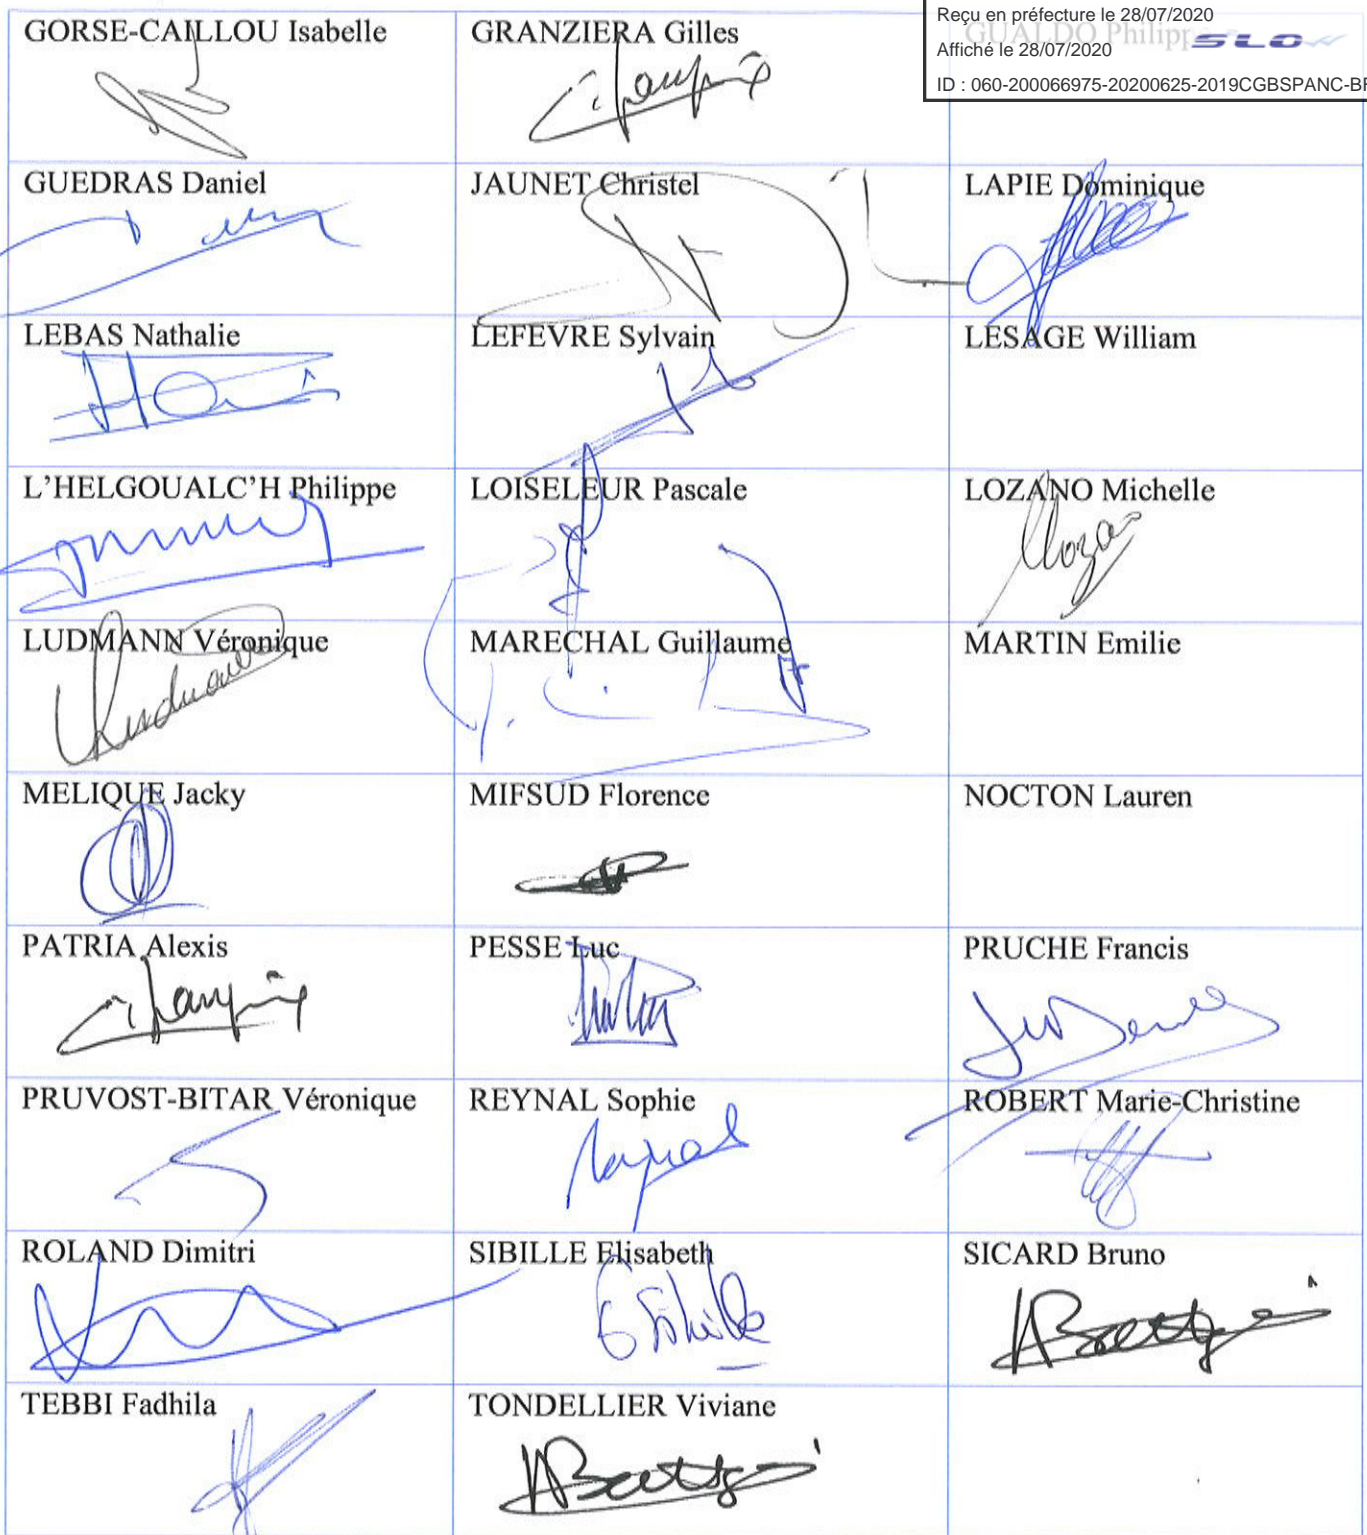 Reçu en préfecture le 28/07/2020
Affiché le 28/07/2020
SLOW
ID : 060-200066975-20200625-2019CGBSPANC-BF
GORSE-CAILLOU Isabelle
GRANZIERA Gilles
GUALDO Philippe
GUEDRAS Daniel
JAUNET Christel
LAPIE Dominique
LEBAS Nathalie
LEFEVRE Sylvain
LESAGE William
L'HELGOUALC'H Philippe
LOISELEUR Pascale
LOZANO Michelle
LUDMANN Véronique
MARECHAL Guillaume
MARTIN Emilie
MELIQUE Jacky
MIFSUD Florence
NOCTON Lauren
PATRIA Alexis
PESSE Luc
PRUCHE Francis
PRUVOST-BITAR Véronique
REYNAL Sophie
ROBERT Marie-Christine
ROLAND Dimitri
SIBILLE Elisabeth
E Sibille
SICARD Bruno
TEBBI Fadhila
TONDELLIER Viviane